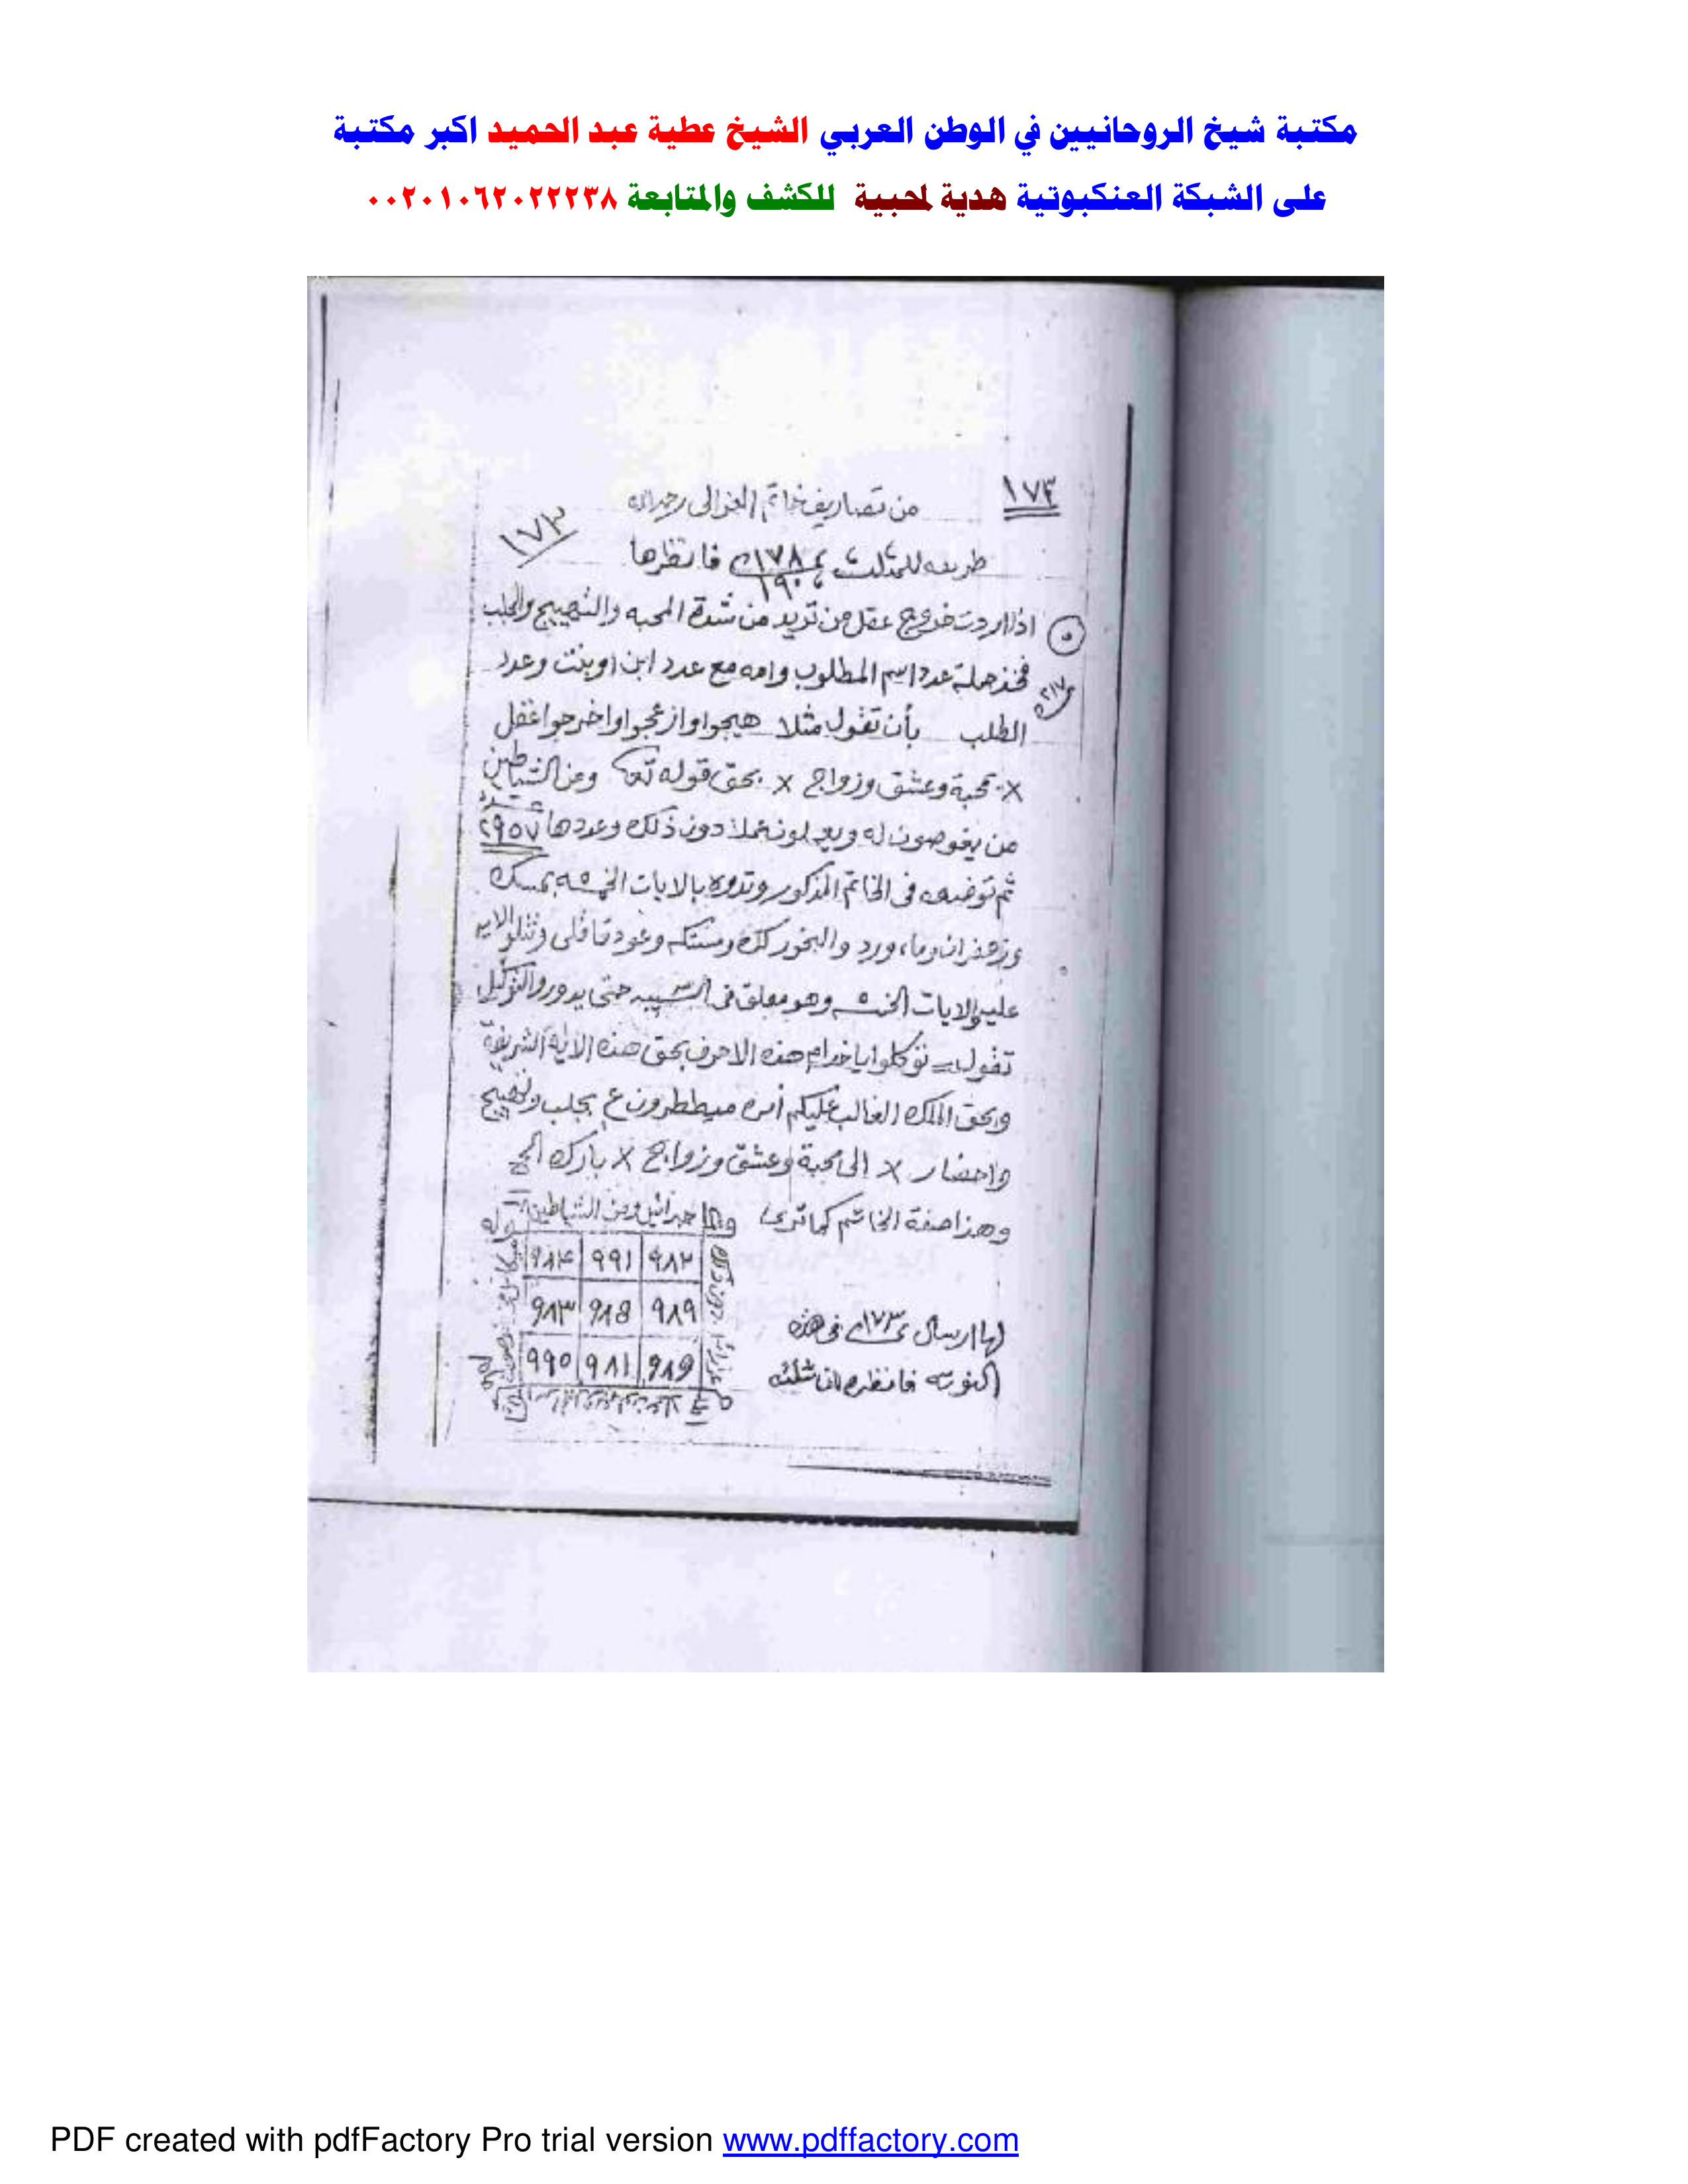 مكتبة شيخ الروحانيين في الوطن العربي الشيخ عطية عبد الحميد اكبر مكتبة
على الشبكة العنكبوتية هدية لمحبية للكشف والمتابعة ٠٠٢٠١٠٦٢٠٢٢٢٣٨
١٧٣
من تصاريف خاتم الغزالى رحمه الله
١٧٣
طريقه للمثلث ١٧٨ فانظرها
١٩٠
اذا اردت خروج عقل من تريد من شدة المحبه والتهييج والجلب
فخذ جملة عدد اسم المطلوب وامه مع عدد ابن او بنت وعدد
الطلب بأن تقول مثلا هيجوا وازعجوا واخرجوا عقل
x محبة وعشق وزواج x بحق قوله تعا ومن الشياطين
من يغوصون له ويعملون عملا دون ذلك وعددها ٢٩٥٧
ثم توضعه فى الخاتم المذكور وتدوره بالايات الخمسه بمسك
وزعفران وماء ورد والبخور ومستكه وعود قاقلى وتتلو الايه
عليه والايات الخمسه وهو معلق فى السيبه حتى يدور والتوكيل
تقول = توكلوا يا خدام هذه الاحرف بحق هذه الاية الشريفة
وبحق الملك الغالب عليكم أمره ميططرون ع بجلب وتهييج
واحضار x الى محبة وعشق وزواج x بارك الخ
وهذا صفة الخاتم كما ترى
جبرائيل ومن الشياطين
٩٨٤ ٩٩١ ٩٨٢
٩٨٣ ٩٨٥ ٩٨٩
٩٩٠ ٩٨١
لها ارسال ١٧٣ فى هذه
النوته فانظره
PDF created with pdfFactory Pro trial version www.pdffactory.com